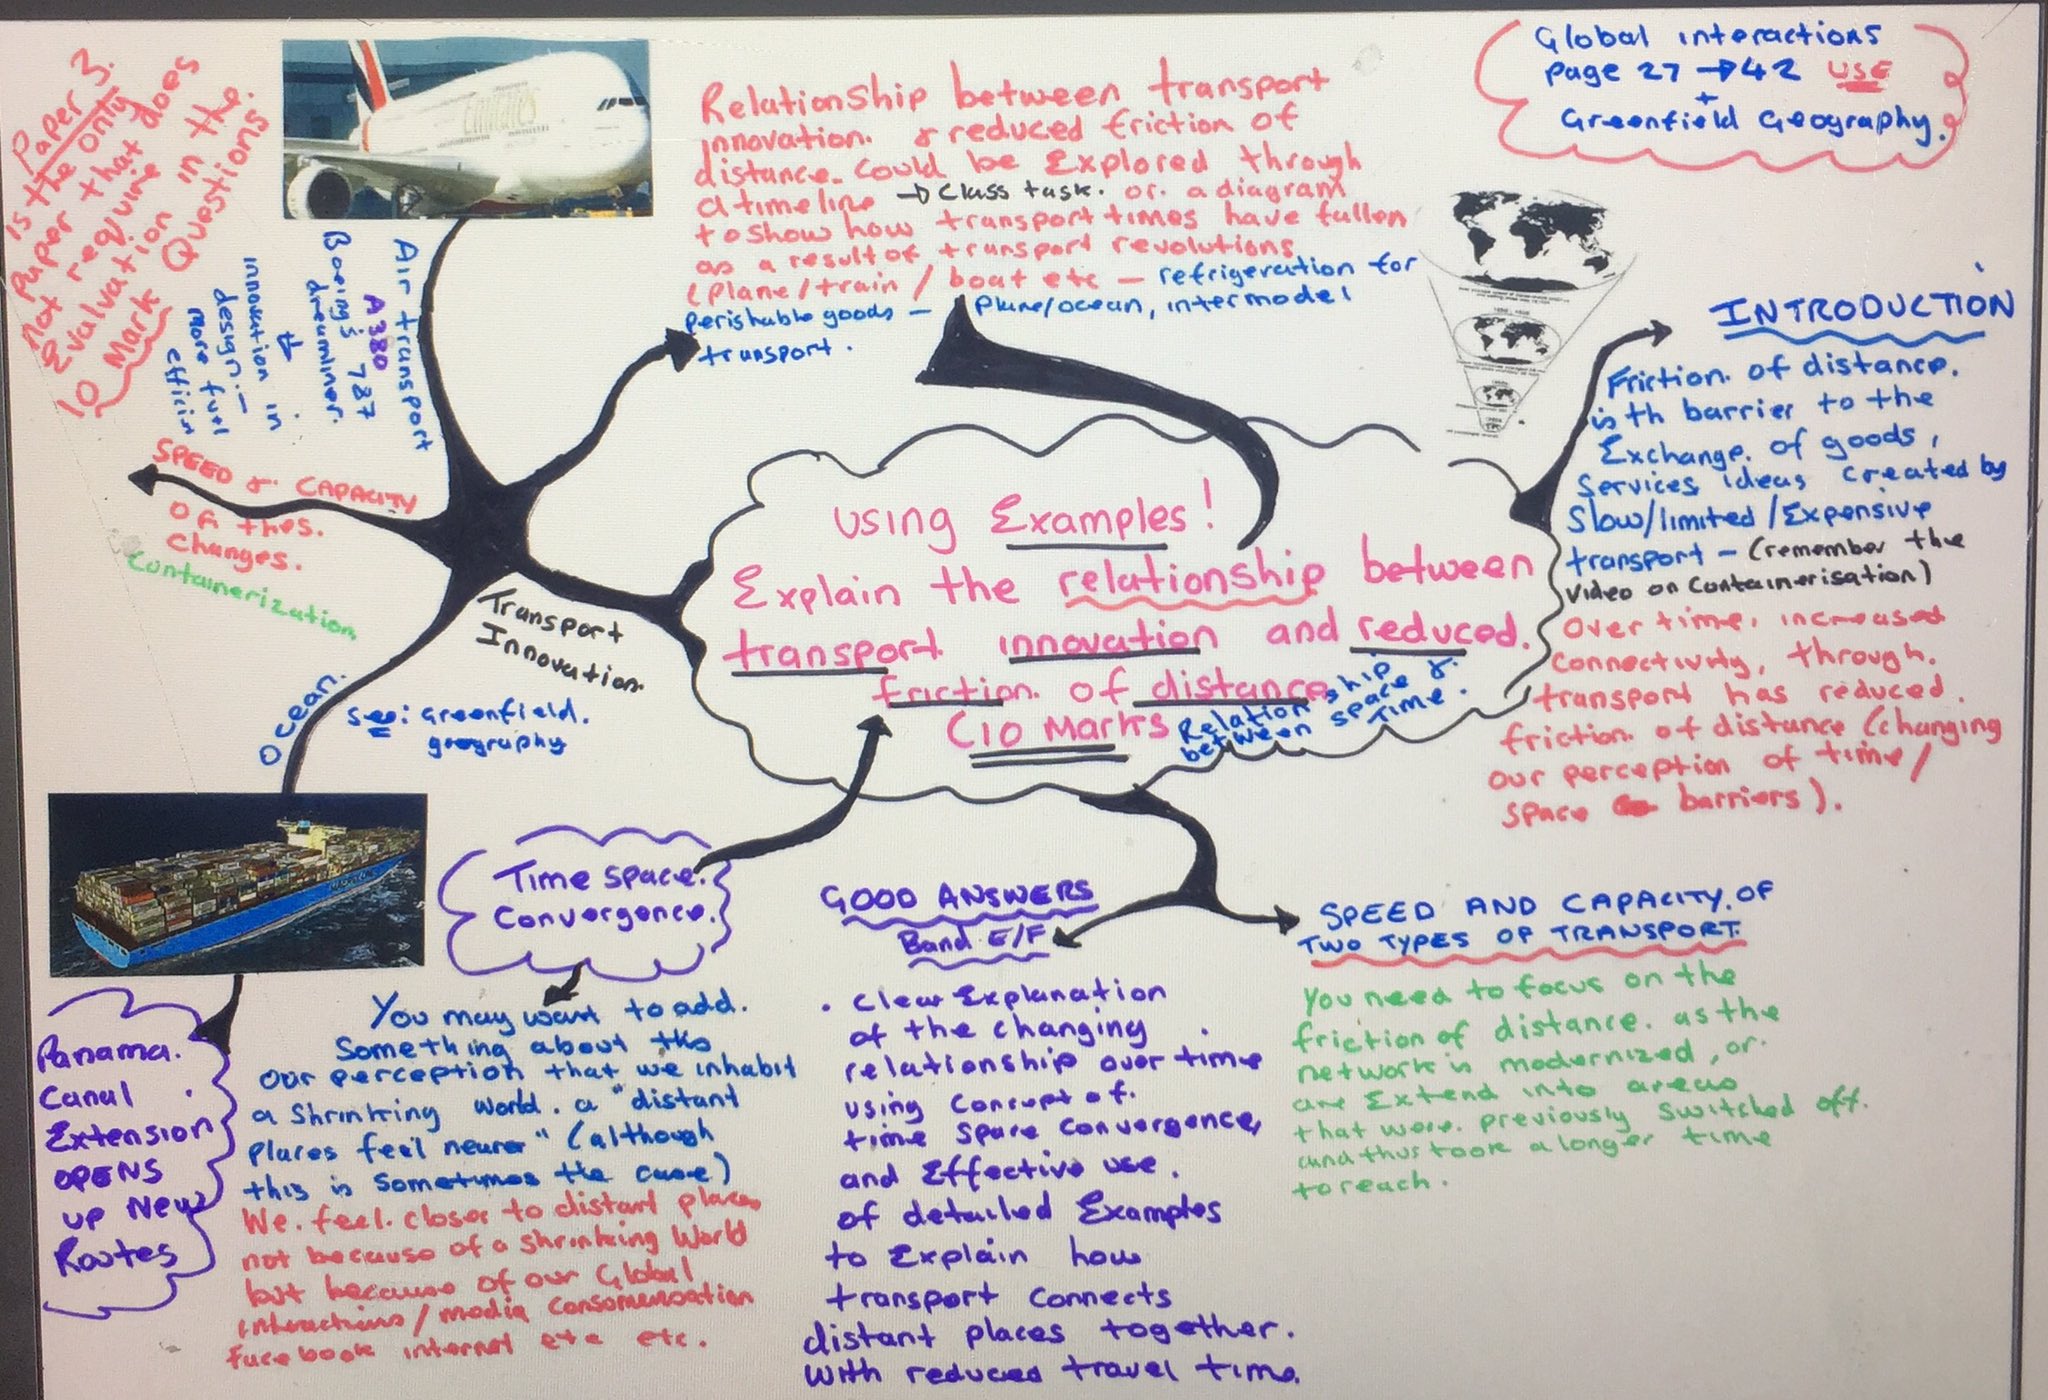 Paper 3.
is the only
paper that does
not require
Evalvation in the
10 Mark Questions.
Emirates
Air transport
A380
Boeing's 787
dreamliner.
innovation in
design. –
more fuel
efficin
Relationship between transport
innovation. & reduced friction of
distance. Could be Explored through
a timeline → Class task. or. a diagram
to show how transport times have fallen
as a result of transport revolutions
(plane/train / boat etc – refrigeration for
perishable goods – plane/ocean, intermodel
transport.
Global interactions
page 27 → 42 USE
+
Greenfield Geography.
INTRODUCTION
Friction. of distance.
is th barrier to the
Exchange. of goods,
Services ideas created by
Slow/limited/Expensive
transport – (remember the
video on containerisation)
Over time, increased
connectivity, through.
transport has reduced.
friction. of distance (changing
our perception of time/
space barriers).
SPEED & CAPACITY
of thes.
changes.
containerization
Transport
Innovation.
Ocean.
See: Greenfield.
geography
using Examples!
Explain the relationship between
transport innovation and reduced.
friction. of distance.
(10 Marks
Relationship
between space &.
Time.
MAERSK LINE
Panama.
Canal
Extension
OPENS
up New
Routes
Time space.
Convergence.
You may want to add.
Something about the
our perception that we inhabit
a shrinking world. a "distant
places feel nearer" (although
this is sometimes the case)
We. feel. closer to distant places
not because of a shrinking World
but because of our Global
interactions/media
facebook internet etc etc.
GOOD ANSWERS
Band E/F
. Clear Explanation
of the changing
relationship over time
using Concept of.
time space convergence,
and Effective use.
of detailed Examples
to Explain how
transport connects
distant places together.
With reduced travel time.
SPEED AND CAPACITY. OF
TWO TYPES OF TRANSPORT.
You need to focus on the
friction of distance. as the
network is modernized, or.
are Extend into areas
that were. previously switched off.
and thus took a longer time
to reach.